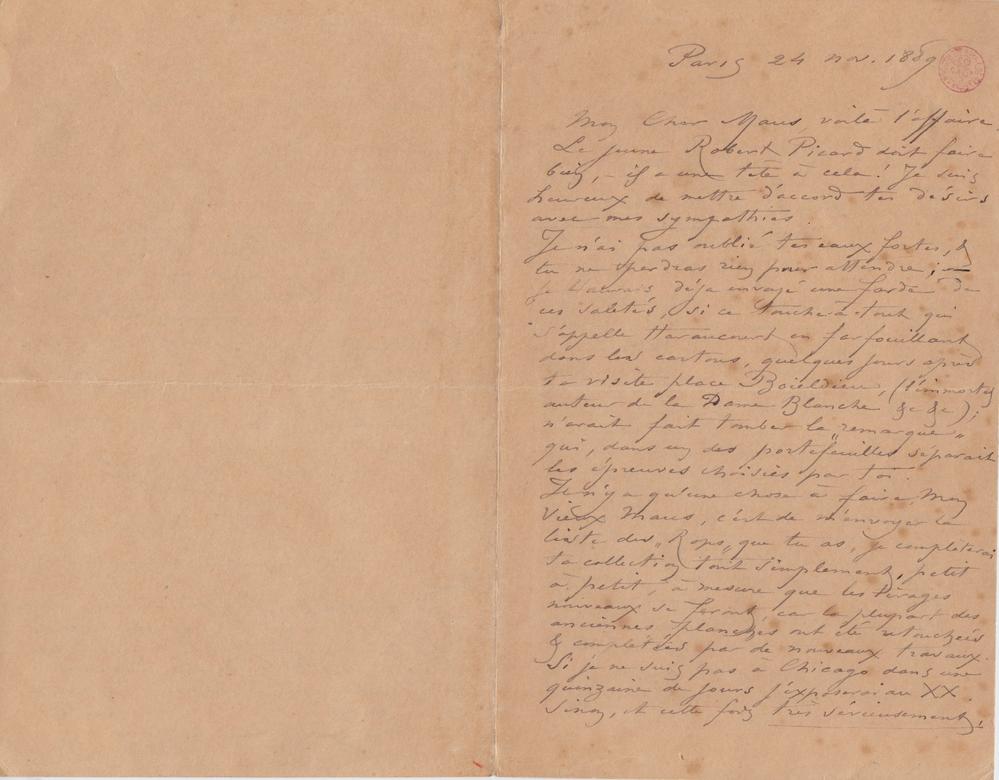 Paris 24 nov. 1889
Mon Cher Maus, voilà l'affaire
Le jeune Robert Picard doit faire
bien, – il a une tête à cela! Je suis
heureux de mettre d'accord tes désirs
avec mes sympathies.
Je n'ai pas oublié tes eaux fortes, &
tu ne perdras rien pour attendre; —
Je t'aurais déjà envoyé une farde de
ces saletés, si ce touche-à-tout qui
s'appelle Haraucourt en farfouillant
dans les cartons, quelques jours après
ta visite place Boieldieu, (l'immortel
auteur de la Dame Blanche &c &c);
n'avait fait tomber la "remarque"
qui, dans un des portefeuilles séparait
les épreuves choisies par toi.
Il n'y a qu'une chose à faire, mon
vieux Maus, c'est de m'envoyer la
liste des „Rops„ que tu as, je completerai
ta collection tout simplement, petit
à petit, à mesure que les tirages
nouveaux se feront, car la plupart des
anciennes planches ont été retouchées
& complétées par de nouveaux travaux.
Si je ne suis pas à Chicago dans une
quinzaine de jours j'exposerai au XX.
Sinon, et cette fois très sérieusement,